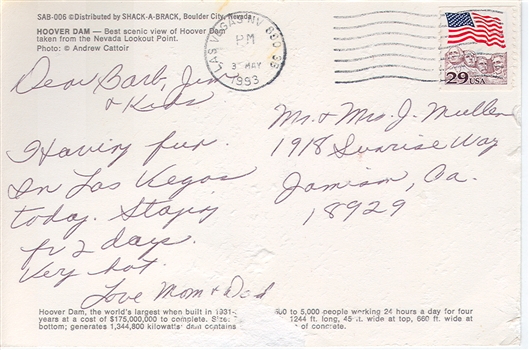 SAB-006 ©Distributed by SHACK-A-BRACK, Boulder City, Nevada
HOOVER DAM — Best scenic view of Hoover Dam
taken from the Nevada Lookout Point.
Photo: © Andrew Cattoir
LAS VEGAS NV 890
PM
3 MAY
1993
29 USA
Dear Barb, Jim
& Kids
Having fun
In Las Vegas
today. Staying
fr 2 days.
Very hot.
Love Mom & Dad
Mr. & Mrs. J. Mullen
1918 Sunrise Way
Jamison, Pa.
18929
Hoover Dam, the world's largest when built in 1931- 600 to 5,000 people working 24 hours a day for four
years at a cost of $175,000,000 to complete. Size: 1244 ft. long, 45 ft. wide at top, 660 ft. wide at
bottom; generates 1,344,800 kilowatts dam contains of concrete.